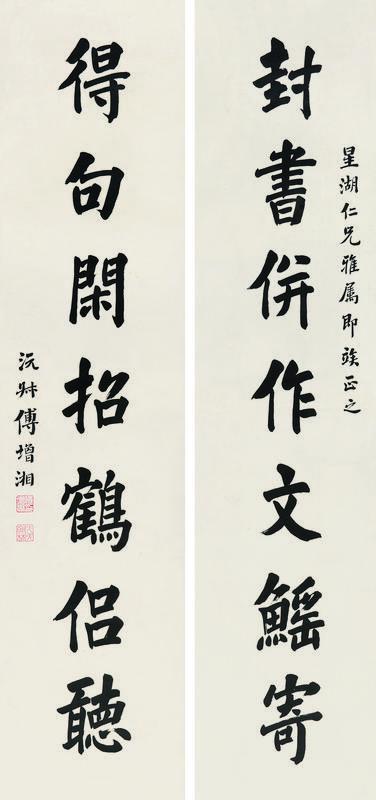 星湖仁兄雅属即竢正之
封書併作文鰩寄
得句閑招鶴侣聽
沅叔傅增湘